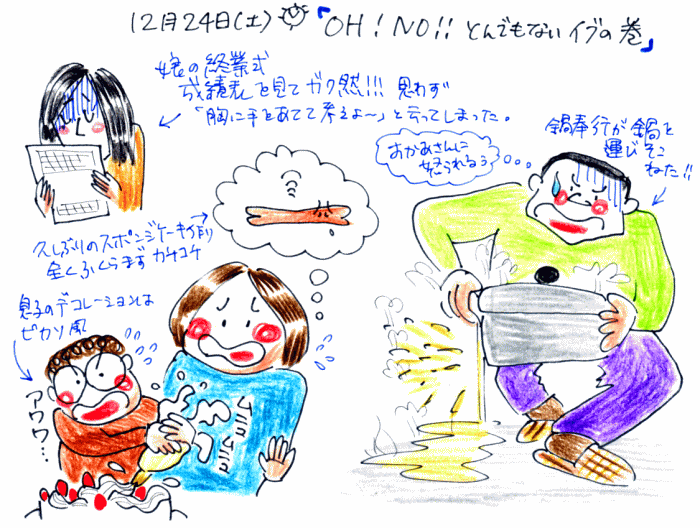 12月24日(土) 「OH!NO!! とんでもないイブの巻」
娘の終業式
成績表を見てガク然!!! 思わず
「胸に手をあてて考えよ〜」と云ってしまった。
鍋奉行が鍋を
運びそこ
ねた!!
おかあさんに
怒られるぅ
久しぶりのスポンジケーキ作り
全くふくらまずカチコチ
息子のデコレーションは
ピカソ風
アワワ…